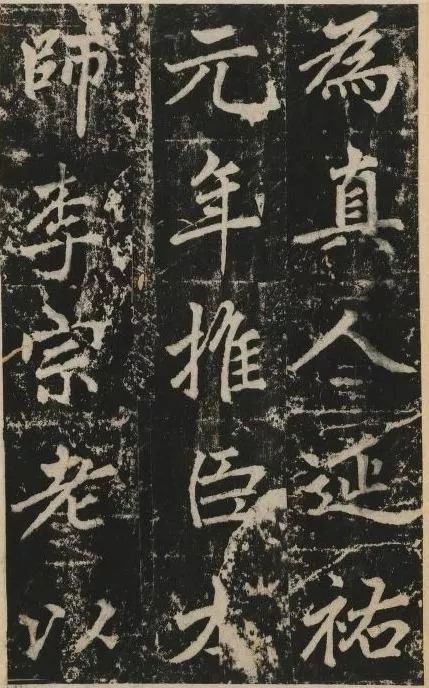 為真人延祐
元年推臣大
師李宗老以